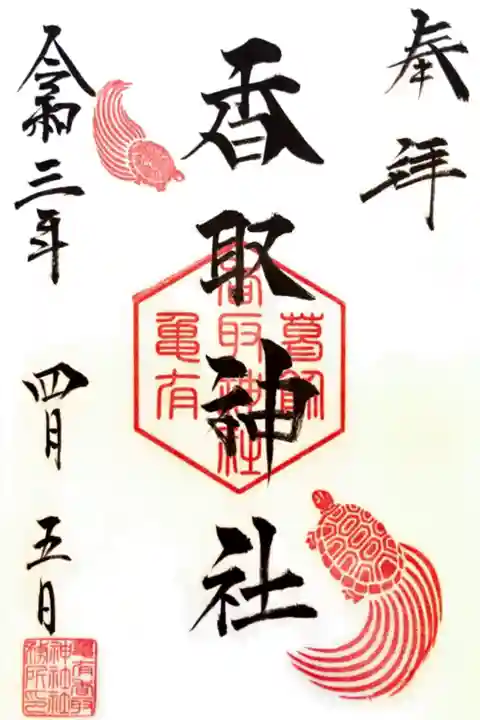 奉拝
香取神社
葛飾
香取神社
亀有
令和三年
四月
五日
亀有香取
神社社
務所印